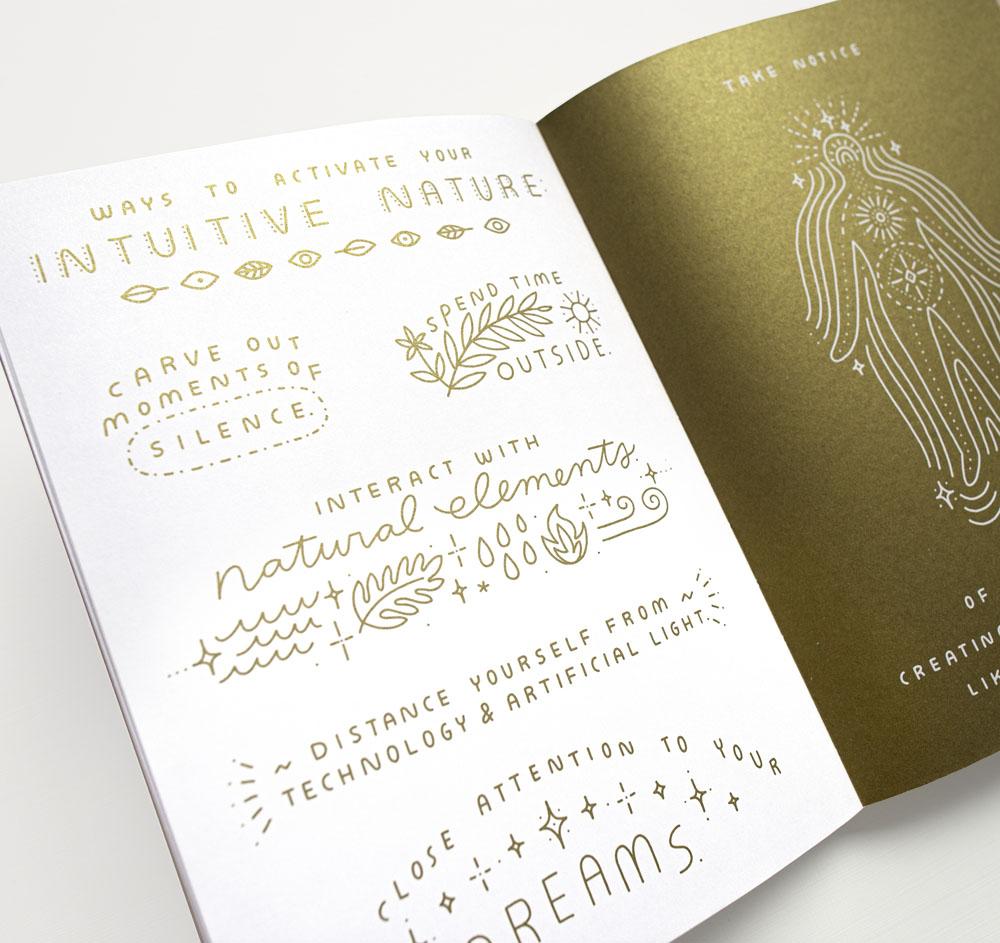 WAYS TO ACTIVATE YOUR
INTUITIVE NATURE
CARVE OUT
MOMENTS OF
SILENCE.
SPEND TIME
OUTSIDE.
INTERACT WITH
natural elements
~ DISTANCE YOURSELF FROM ~
TECHNOLOGY & ARTIFICIAL LIGHT.
CLOSE ATTENTION TO YOUR
DREAMS.
TAKE NOTICE
OF